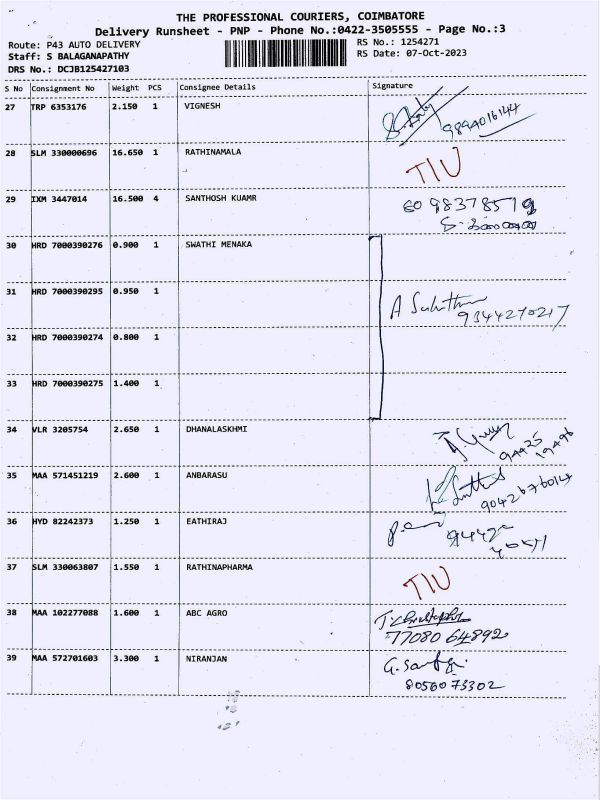 THE PROFESSIONAL COURIERS, COIMBATORE
Delivery Runsheet - PNP - Phone No.:0422-3505555 - Page No.:3
Route: P43 AUTO DELIVERY RS No.: 1254271
Staff: S BALAGANAPATHY RS Date: 07-Oct-2023
DRS No.: DCJB125427103
S No Consignment No Weight PCS Consignee Details Signature
27 TRP 6353176 2.150 1 VIGNESH
9894016144
28 SLM 330000696 16.650 1 RATHINAMALA
TIU
29 IXM 3447014 16.500 4 SANTHOSH KUAMR
30 HRD 7000390276 0.900 1 SWATHI MENAKA
31 HRD 7000390295 0.950 1
9344270217
32 HRD 7000390274 0.800 1
33 HRD 7000390275 1.400 1
34 VLR 3205754 2.650 1 DHANALASKHMI
94425
19496
35 MAA 571451219 2.600 1 ANBARASU
9042676014
36 HYD 82242373 1.250 1 EATHIRAJ
37 SLM 330063807 1.550 1 RATHINAPHARMA
TIU
38 MAA 102277088 1.600 1 ABC AGRO
J. Christopher
77080 64892
39 MAA 572701603 3.300 1 NIRANJAN
8056073302